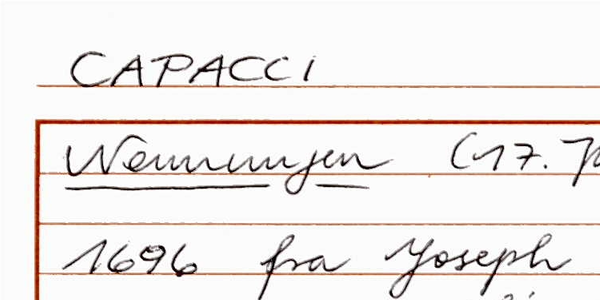 CAPACCI
Nennungen (17. J
1696 fra Joseph